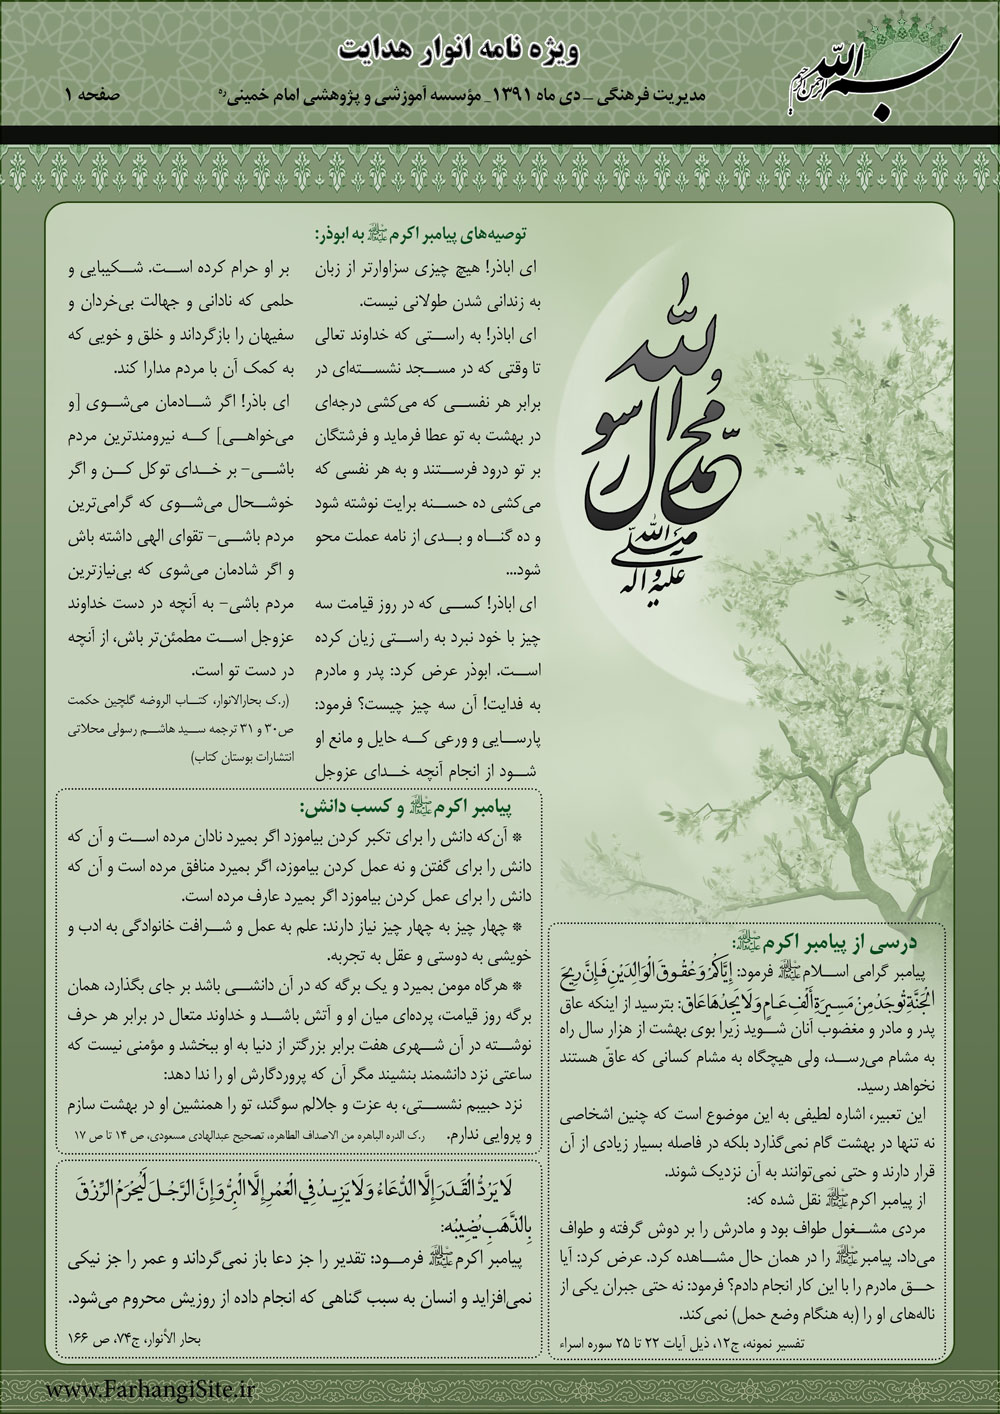 بسم الله الرحمن الرحیم
ویژه نامه انوار هدایت
مدیریت فرهنگی _ دی ماه ۱۳۹۱_ مؤسسه آموزشی و پژوهشی امام خمینی ره
صفحه ۱
محمد رسول الله
صلی الله علیه و آله
توصیه‌های پیامبر اکرم ﷺ به ابوذر:
ای اباذر! هیچ چیزی سزاوارتر از زبان
به زندانی شدن طولانی نیست.
ای اباذر! به راستی که خداوند تعالی
تا وقتی که در مسجد نشسته‌ای در
برابر هر نفسی که می‌کشی درجه‌ای
در بهشت به تو عطا فرماید و فرشتگان
بر تو درود فرستند و به هر نفسی که
می‌کشی ده حسنه برایت نوشته شود
و ده گناه و بدی از نامه عملت محو
شود...
ای اباذر! کسی که در روز قیامت سه
چیز با خود نبرد به راستی زیان کرده
است. ابوذر عرض کرد: پدر و مادرم
به فدایت! آن سه چیز چیست؟ فرمود:
پارسایی و ورعی که حایل و مانع او
شود از انجام آنچه خدای عزوجل
بر او حرام کرده است. شکیبایی و
حلمی که نادانی و جهالت بی‌خردان و
سفیهان را بازگرداند و خلق و خویی که
به کمک آن با مردم مدارا کند.
ای باذر! اگر شادمان می‌شوی [و
می‌خواهی] که نیرومندترین مردم
باشی- بر خدای توکل کن و اگر
خوشحال می‌شوی که گرامی‌ترین
مردم باشی- تقوای الهی داشته باش
و اگر شادمان می‌شوی که بی‌نیازترین
مردم باشی- به آنچه در دست خداوند
عزوجل است مطمئن‌تر باش، از آنچه
در دست تو است.
(ر.ک بحارالانوار، کتاب الروضه گلچین حکمت
ص۳۰ و ۳۱ ترجمه سید هاشم رسولی محلاتی
انتشارات بوستان کتاب)
پیامبر اکرم ﷺ و کسب دانش:
* آن‌که دانش را برای تکبر کردن بیاموزد اگر بمیرد نادان مرده است و آن که
دانش را برای گفتن و نه عمل کردن بیاموزد، اگر بمیرد منافق مرده است و آن که
دانش را برای عمل کردن بیاموزد اگر بمیرد عارف مرده است.
* چهار چیز به چهار چیز نیاز دارند: علم به عمل و شرافت خانوادگی به ادب و
خویشی به دوستی و عقل به تجربه.
* هرگاه مومن بمیرد و یک برگه که در آن دانشی باشد بر جای بگذارد، همان
برگه روز قیامت، پرده‌ای میان او و آتش باشد و خداوند متعال در برابر هر حرف
نوشته در آن شهری هفت برابر بزرگتر از دنیا به او ببخشد و مؤمنی نیست که
ساعتی نزد دانشمند بنشیند مگر آن که پروردگارش او را ندا دهد:
نزد حبیبم نشستی، به عزت و جلالم سوگند، تو را همنشین او در بهشت سازم
و پروایی ندارم. ر.ک الدره الباهره من الاصداف الطاهره، تصحیح عبدالهادی مسعودی، ص ۱۴ تا ص ۱۷
لَا يَرُدُّ الْقَدَرَ إِلَّا الدُّعَاءُ وَ لَا يَزِيدُ فِي الْعُمْرِ إِلَّا الْبِرُّ وَ إِنَّ الرَّجُلَ لَيُحْرَمُ الرِّزْقَ
بِالذَّنْبِ يُصِيبُه:
پیامبر اکرم ﷺ فرمود: تقدیر را جز دعا باز نمی‌گرداند و عمر را جز نیکی
نمی‌افزاید و انسان به سبب گناهی که انجام داده از روزیش محروم می‌شود.
بحار الأنوار، ج۷۴، ص ۱۶۶
درسی از پیامبر اکرم ﷺ:
پیامبر گرامی اسلام ﷺ فرمود: إِيَّاكُمْ وَ عُقُوقَ الْوَالِدَيْنِ فَإِنَّ رِيحَ
الْجَنَّةِ تُوجَدُ مِنْ مَسِيرَةِ أَلْفِ عَامٍ وَ لَا يَجِدُهَا عَاق: بترسید از اینکه عاق
پدر و مادر و مغضوب آنان شوید زیرا بوی بهشت از هزار سال راه
به مشام می‌رسد، ولی هیچگاه به مشام کسانی که عاقّ هستند
نخواهد رسید.
این تعبیر، اشاره لطیفی به این موضوع است که چنین اشخاصی
نه تنها در بهشت گام نمی‌گذارد بلکه در فاصله بسیار زیادی از آن
قرار دارند و حتی نمی‌توانند به آن نزدیک شوند.
از پیامبر اکرم ﷺ نقل شده که:
مردی مشغول طواف بود و مادرش را بر دوش گرفته و طواف
می‌داد. پیامبر ﷺ را در همان حال مشاهده کرد. عرض کرد: آیا
حق مادرم را با این کار انجام دادم؟ فرمود: نه حتی جبران یکی از
ناله‌های او را (به هنگام وضع حمل) نمی‌کند.
تفسیر نمونه، ج۱۲، ذیل آیات ۲۲ تا ۲۵ سوره اسراء
www.FarhangiSite.ir